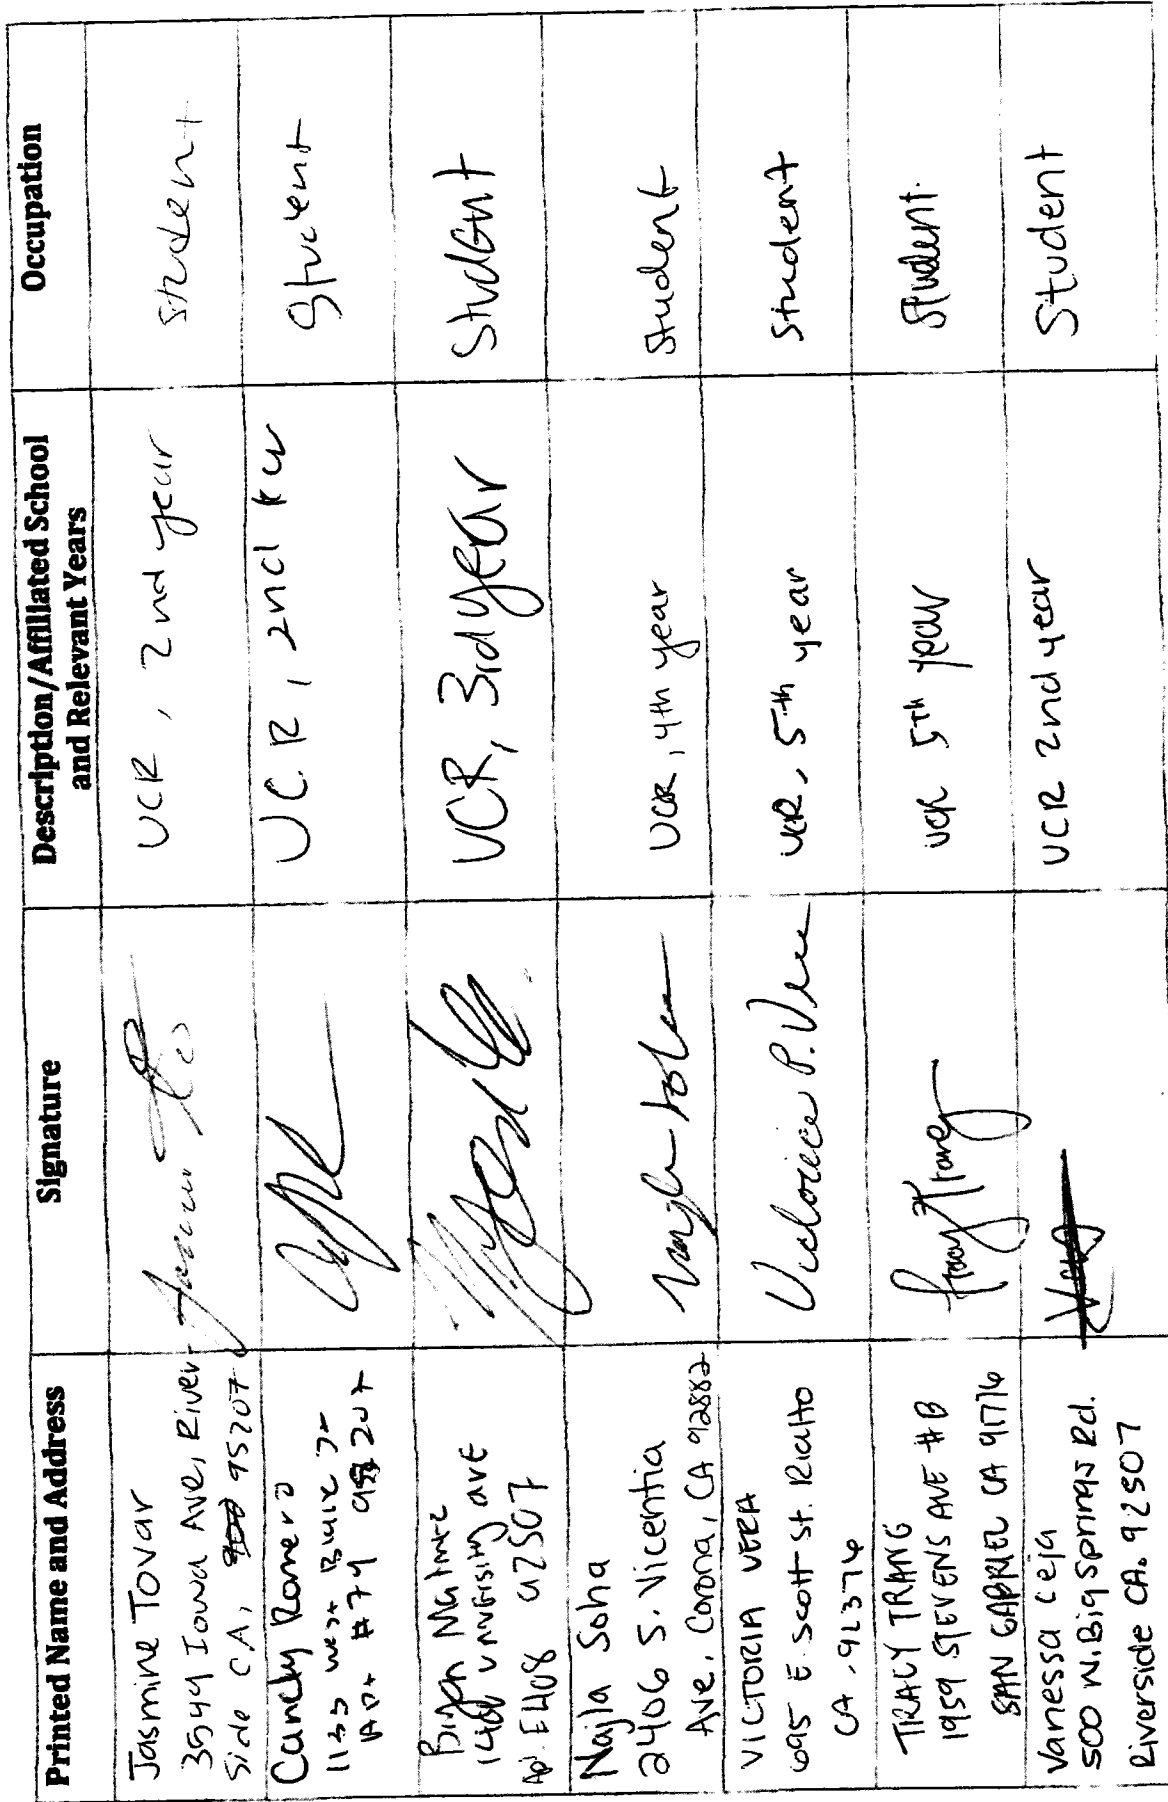 Printed Name and Address
Signature
Description/Affiliated School
and Relevant Years
Occupation
Jasmine Tovar
3549 Iowa Ave, River-
side CA, 95207
UCR, 2nd year
student
Candy Romero
1133 West Blaine St
Apt #79
UCR, 2nd
Student
University ave
Apt. E408 92507
UCR, 3rd year
Student
Najla Soha
2406 S. Vicentia
Ave, Corona, CA 92882
UCR, 4th year
Student
VICTORIA VERA
695 E. Scott St. Rialto
CA. 92376
Victoria P. Vera
UCR, 5th year
Student
TRACY TRANG
1959 STEVENS AVE #B
SAN GABRIEL CA 91776
Tracy Trang
UCR 5th year
Student.
Vanessa Ceja
500 W. Big Springs Rd.
Riverside CA. 92507
UCR 2nd year
Student